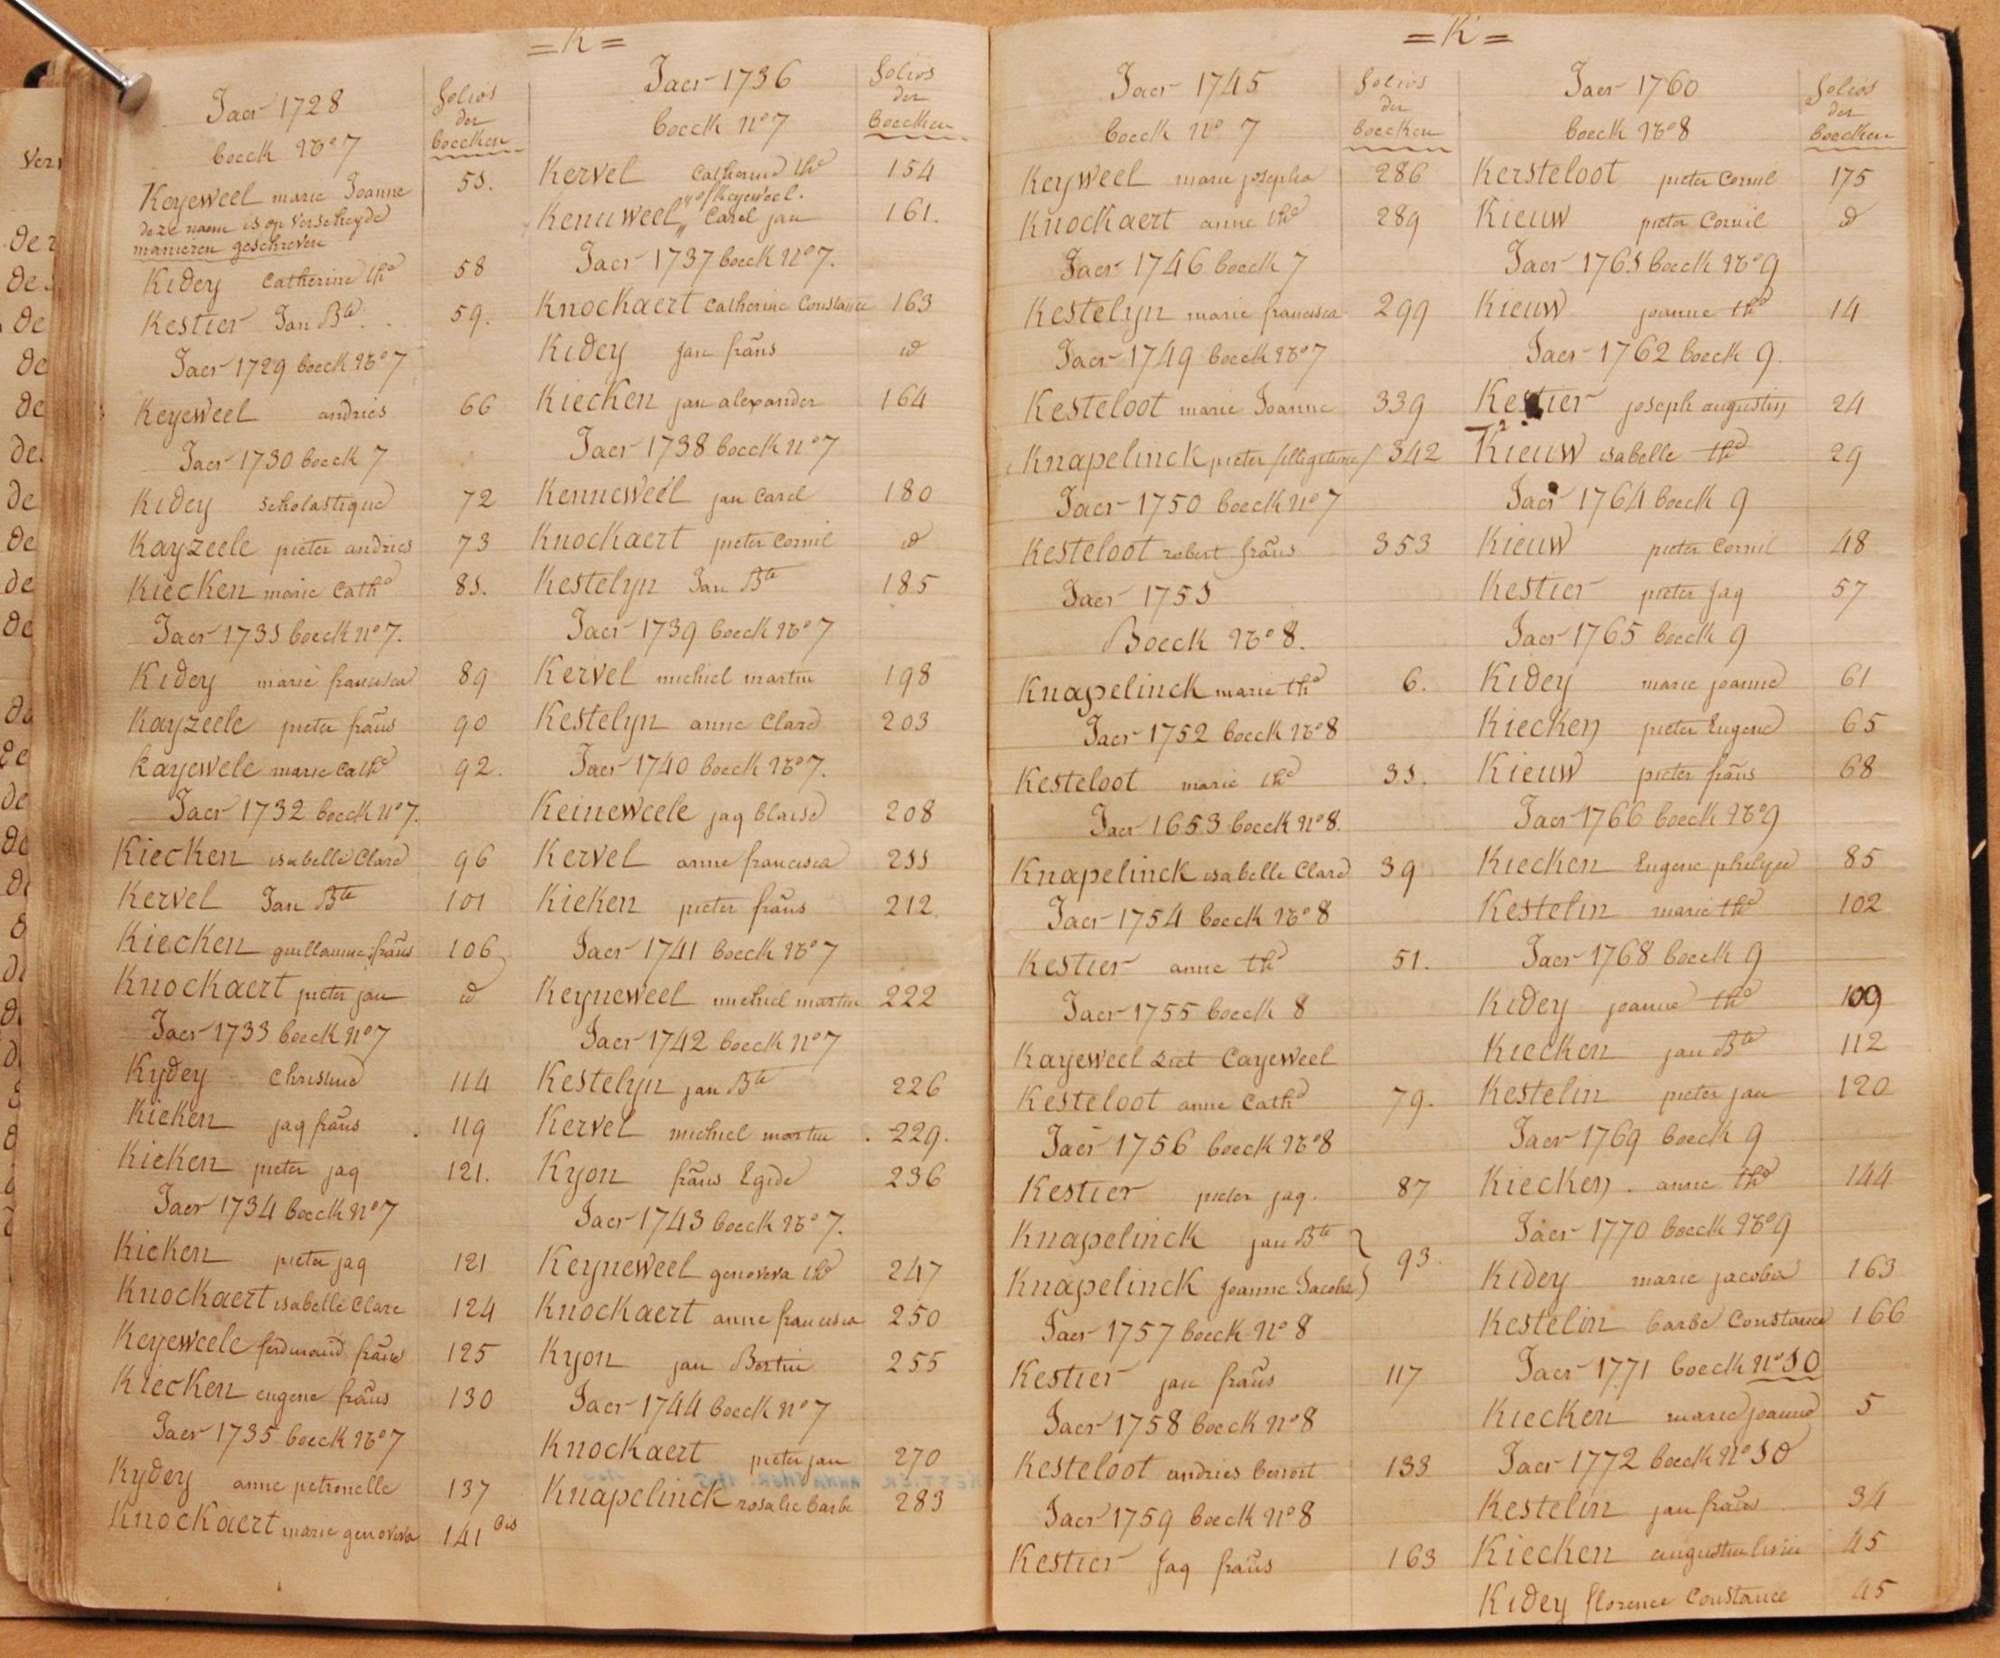 = K =
Jaer 1728
folios
der
boecken
boeck No 7
Keyeweel marie Joanne 51.
deze naem is op verscheyde
manieren geschreven
Kidey Catherine the 58
Kestier Jan Bte . . 59.
Jaer 1729 boeck No 7
Keyeweel andries 66
Jaer 1730 boeck 7
Kidey scholastique 72
Kayzeele pieter andries 73
Kiecken marie Cathe 81.
Jaer 1731 boeck No 7.
Kidey marie francisca 89
Kayzeele pieter frans 90
Kayewele marie Cathe 92.
Jaer 1732 boeck No 7.
Kiecken isabelle Clare 96
Kervel Jan Bte 101
Kiecken guillaume frans 106
Knockaert pieter jan id
Jaer 1733 boeck No 7
Kydey Christine 114
Kieken jaq frans . 119
Kieken pieter jaq 121.
Jaer 1734 boeck No 7
Kieken pieter jaq 121
Knockaert isabelle Clare 124
Keyeweele ferdinand frans 125
Kiecken eugene frans 130
Jaer 1735 boeck No 7
Kydey anne petronelle 137
Knockaert marie genoveva 141 bis
Jaer 1736
folios
der
boecken
boeck No 7
Kervel Catherine the 154
of Keyeweel.
Kenuweel,, Carel jan 161.
Jaer 1737 boeck No 7.
Knockaert Catherine Constance 163
Kidey jan frans id
Kiecken jan alexander 164
Jaer 1738 boeck No 7
Kenneweel jan Carel 180
Knockaert pieter Cornil id
Kestelyn Jan Bte 185
Jaer 1739 boeck No 7
Kervel michiel martin 198
Kestelyn anne Clare 203
Jaer 1740 boeck No 7.
Keineweele jaq blaise 208
Kervel anne francisca 211
Kieken pieter frans 212.
Jaer 1741 boeck No 7
Keyneweel michiel martin 222
Jaer 1742 boeck No 7
Kestelyn jan Bte 226
Kervel michiel martin . 229.
Kyon frans Egide 236
Jaer 1743 boeck No 7.
Keyneweel genoveva the 247
Knockaert anne francisca 250
Kyon jan Bertin 255
Jaer 1744 boeck No 7
Knockaert pieter jan 270
Knapelinck rosalie barbe 283
= K =
Jaer 1745
folios
der
boecken
boeck No 7
Keyweel marie josepha 286
Knockaert anne the 289
Jaer 1746 boeck 7
Kestelyn marie francisca 299
Jaer 1749 boeck No 7
Kesteloot marie Joanne 339
Knapelinck pieter /illegitime/ 342
Jaer 1750 boeck No 7
Kesteloot robert frans 353
Jaer 1751
Boeck No 8.
Knapelinck marie the 6.
Jaer 1752 boeck No 8
Kesteloot marie the 31.
Jaer 1653 boeck No 8.
Knapelinck isabelle Clare 39
Jaer 1754 boeck No 8
Kestier anne the 51.
Jaer 1755 boeck 8
Kayeweel ziet Cayeweel
Kesteloot anne Cathe 79.
Jaer 1756 boeck No 8
Kestier pieter jaq. 87
Knapelinck jan Bte }
93.
Knapelinck Joanne Jacoba }
Jaer 1757 boeck No 8
Kestier jan frans 117
Jaer 1758 boeck No 8
Kesteloot andries benoit 133
Jaer 1759 boeck No 8
Kestier Jaq frans 163
Jaer 1760
folios
der
boecken
boeck No 8
Kersteloot pieter Cornil 175
Kieuw pieter Cornil id
Jaer 1761 boeck No 9
Kieuw joanne the 14
Jaer 1762 boeck 9.
Kestier joseph augustin 24
Kieuw isabelle the 29
Jaer 1764 boeck 9
Kieuw pieter Cornil 48
Kestier pieter Jaq 57
Jaer 1765 boeck 9
Kidey marie joanne 61
Kiecken pieter Eugene 65
Kieuw pieter frans 68
Jaer 1766 boeck No 9
Kiecken Eugene 85
Kestelin marie the 102
Jaer 1768 boeck 9
Kidey joanne the 109
Kiecken jan Bte 112
Kestelin pieter jan 120
Jaer 1769 boeck 9
Kiecken . anne the 144
Jaer 1770 boeck No 9
Kidey marie jacoba 163
Kestelin barbe Constance 166
Jaer 1771 boeck No 10
Kiecken marie joanne 5
Jaer 1772 boeck No 10
Kestelin jan frans 34
Kiecken 45
Kidey florence Constance 45